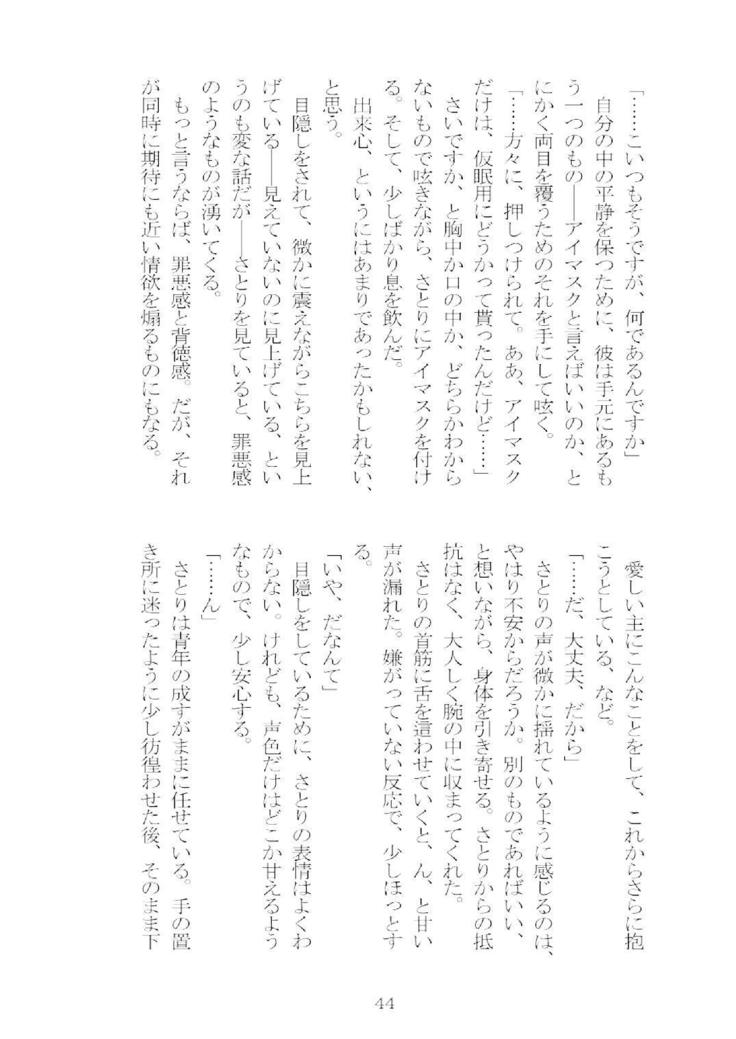 「……こいつもそうですが、何であるんですか」
自分の中の平静を保つために、彼は手元にあるも
う一つのもの――アイマスクと言えばいいのか、と
にかく両目を覆うためのそれを手にして呟く。
「……方々に、押しつけられて。ああ、アイマスク
だけは、仮眠用にどうかって貰ったんだけど……」
さいですか、と胸中か口の中か、どちらかわから
ないもので呟きながら、さとりにアイマスクを付け
る。そして、少しばかり息を飲んだ。
出来心、というにはあまりであったかもしれない、
と思う。
目隠しをされて、微かに震えながらこちらを見上
げている――見えていないのに見上げている、とい
うのも変な話だが――さとりを見ていると、罪悪感
のようなものが湧いてくる。
もっと言うならば、罪悪感と背徳感。だが、それ
が同時に期待にも近い情欲を煽るものにもなる。
愛しい主にこんなことをして、これからさらに抱
こうとしている、など。
「……だ、大丈夫、だから」
さとりの声が微かに揺れているように感じるのは、
やはり不安からだろうか。別のものであればいい、
と想いながら、身体を引き寄せる。さとりからの抵
抗はなく、大人しく腕の中に収まってくれた。
さとりの首筋に舌を這わせていくと、ん、と甘い
声が漏れた。嫌がっていない反応で、少しほっとす
る。
「いや、だなんて」
目隠しをしているために、さとりの表情はよくわ
からない。けれども、声色だけはどこか甘えるよう
なもので、少し安心する。
「……ん」
さとりは青年の成すがままに任せている。手の置
き所に迷ったように少し彷徨わせた後、そのまま下
44